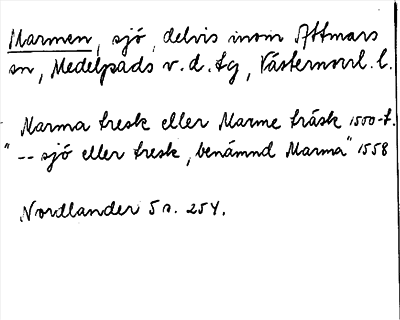 Marmen, sjö, delvis inom Attmars
sn, Medelpads v. d. tg, Västernorrl. l.
Marma tresk eller Marme träsk 1500-t.
"-- sjö eller tresk, benämnd Marma" 1558
Nordlander 5 s. 254.